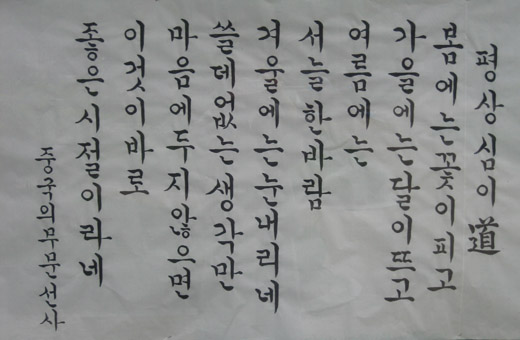 평상심이 道
봄에는 꽃이 피고
가을에는 달이 뜨고
여름에는
서늘한 바람
겨울에는 눈 내리네
쓸데없는 생각만
마음에 두지 않으면
이것이 바로
좋은 시절이라네
중국의 무문선사